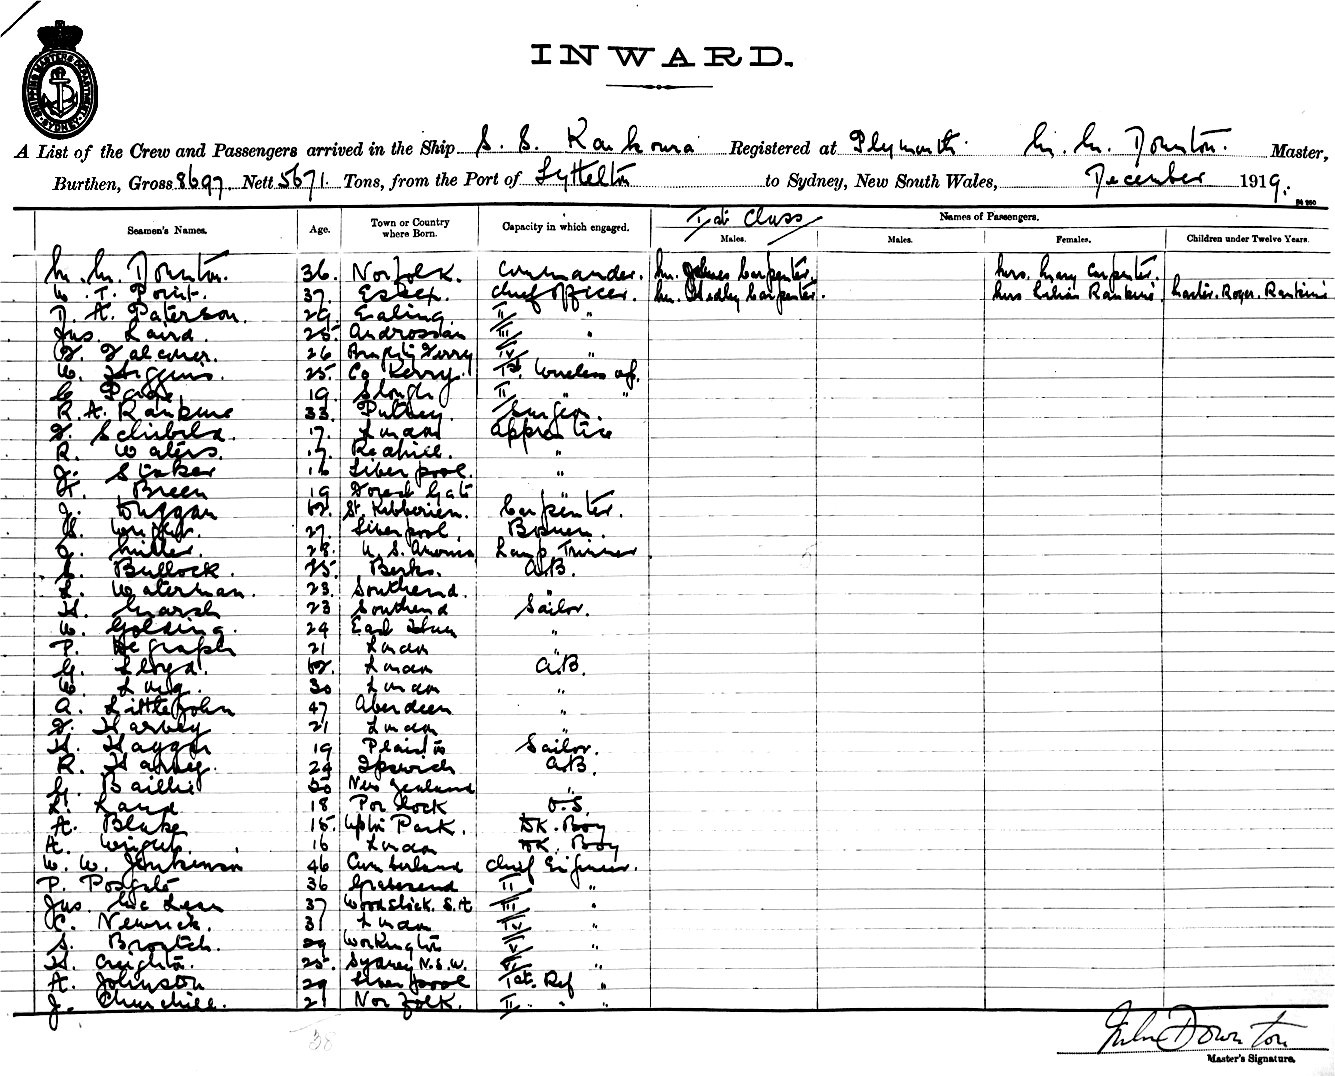 SHIPPING MASTERS DEPARTMENT SYDNEY
INWARD.
A List of the Crew and Passengers arrived in the Ship S. S. Kaikoura Registered at Plymouth M. M. Downton. Master,
Burthen, Gross 8697 Nett 5671. Tons, from the Port of Lyttelton to Sydney, New South Wales, December 1919.
1st Class
Names of Passengers.
Seamen's Names. Age. Town or Country where Born. Capacity in which engaged. Males. Males. Females. Children under Twelve Years.
M. M. Downton. 36. Norfolk. Commander. Mr. James Carpenter. Mrs. Mary Carpenter.
W. T. Point. 37. Essex. Chief Officer. Mr. Hedley Carpenter. Mrs Lilias Rankine Master. Roger. Rankine
D. A. Paterson. 29. Ealing. II "
Jas. Laird. 25. Androssan III "
F. Falconer. 26 Ferry IV "
W. Higgins. 25. Co Kerry. 1st. Wireless op.
C. Page. 19. Slough II " "
R. A. Rankine 33. Putney. Surgeon.
17. London Apprentice
R. Waters. 17. "
J. Staker 16 Liverpool. "
Breen 19 Forest Gate "
J. Duggan 62. Carpenter.
27. Liverpool. Bosun.
J. Miller. 28. U. S. America Lamp Trimmer
Bullock. 25. Berks. A.B.
L. Waterman. 23. Southend. "
H. Marsh 23 Southend Sailor.
W. Golding. 24 East Ham "
P. De 21 London "
G. Lloyd. 62. London A.B.
30 London "
A. Littlejohn 47 Aberdeen "
F. Harvey 21 London "
H. 19 Plaistow Sailor.
R. Harvey. 24 Ipswich A.B.
G. Baillie 50 New Zealand "
18 Porlock O.S.
A. Blake 15. Upton Park. DK. Boy
A. Wright. 16 London DK. Boy
W. W. Jenkinson 46 Cumberland Chief Engineer.
P. Posgate 36 Gravesend II "
Jas. McLean 37 Woodstock. S.A III "
C. Newrick. 31 London IV "
S. 29 Workington V "
H. Creighton. 25. Sydney N.S.W. VI "
A. Johnson 29 Liverpool 1st. Ref "
J. Churchill. 21 Norfolk. II " "
38
Downton
Master's Signature.